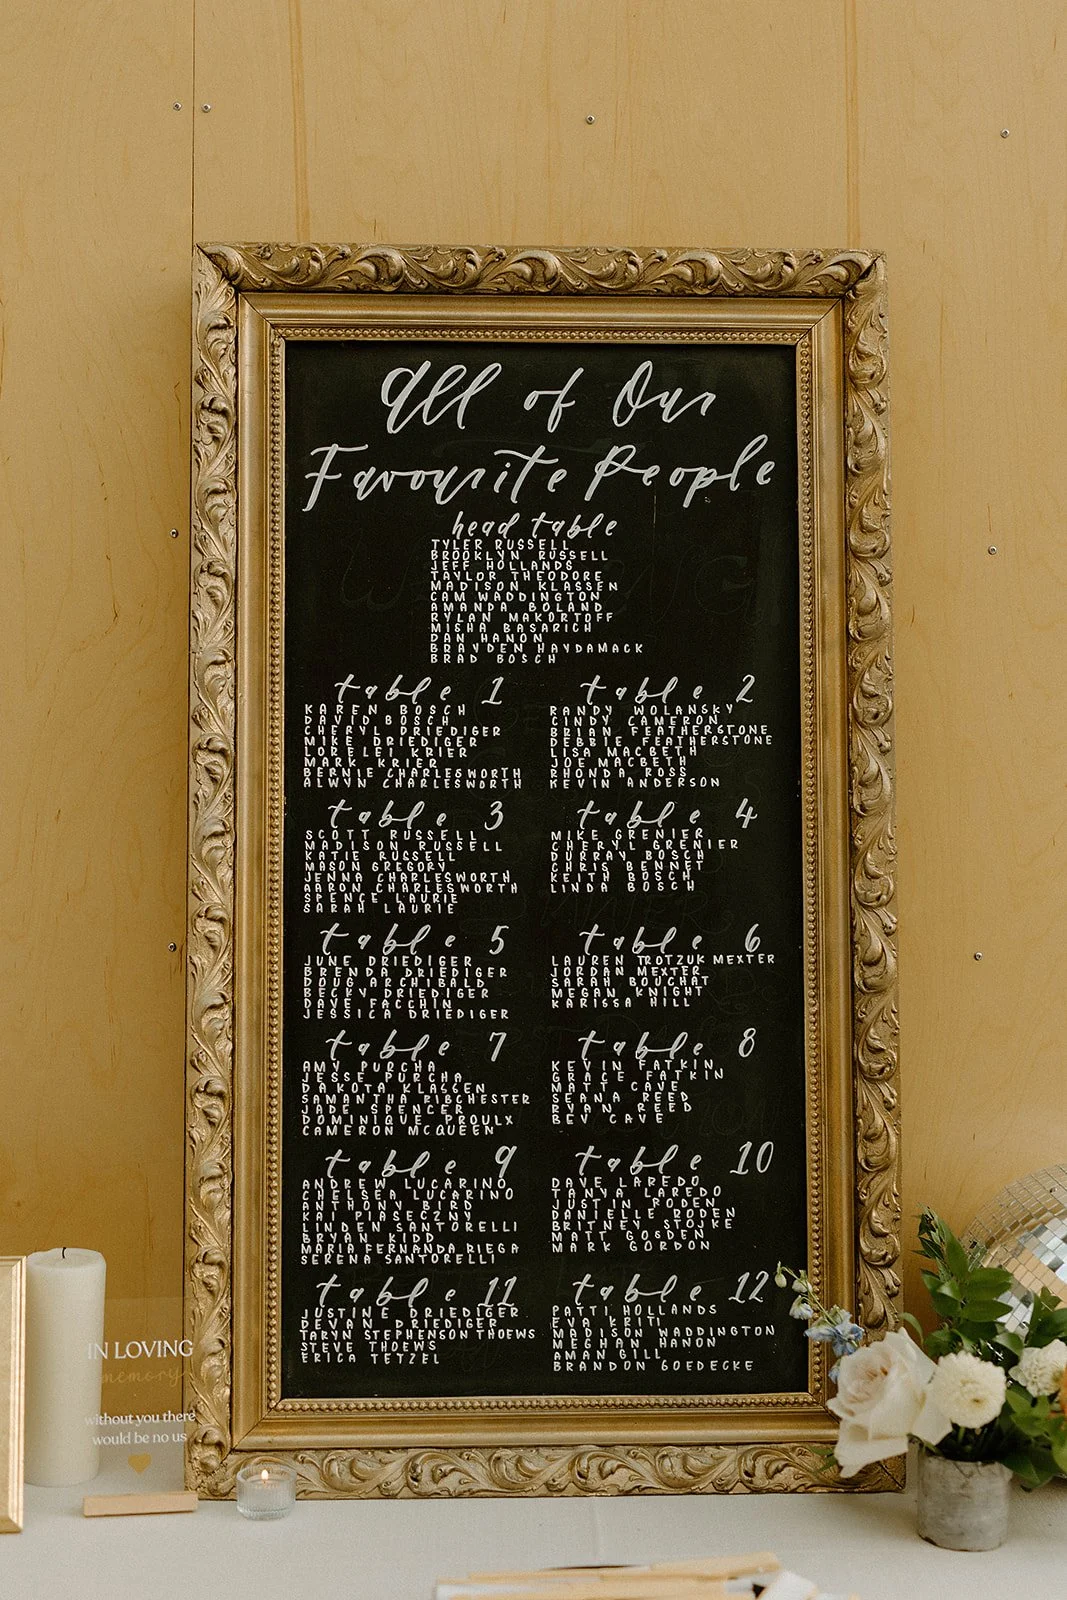 All of Our
Favourite People
head table
TYLER RUSSELL
BROOKLYN RUSSELL
JEFF HOLLANDS
TAYLOR THEODORE
MADISON KLASSEN
CAM WADDINGTON
AMANDA BOLAND
RYLAN MAKORTOFF
MISHA BASARICH
DAN HANON
BRAYDEN HAYDAMACK
BRAD BOSCH
table 1
KAREN BOSCH
DAVID BOSCH
CHERYL DRIEDIGER
MIKE DRIEDIGER
LORELEI KRIER
MARK KRIER
BERNIE CHARLESWORTH
ALWYN CHARLESWORTH
table 2
RANDY WOLANSKY
CINDY CAMERON
BRIAN FEATHERSTONE
DEBBIE FEATHERSTONE
LISA MACBETH
JOE MACBETH
RHONDA ROSS
KEVIN ANDERSON
table 3
SCOTT RUSSELL
MADISON RUSSELL
KATIE RUSSELL
MASON GREGORY
JENNA CHARLESWORTH
AARON CHARLESWORTH
SPENCE LAURIE
SARAH LAURIE
table 4
MIKE GRENIER
CHERYL GRENIER
DURRAY BOSCH
CHRIS BENNET
KEITH BOSCH
LINDA BOSCH
table 5
JUNE DRIEDIGER
BRENDA DRIEDIGER
DOUG ARCHIBALD
BECKY DRIEDIGER
DAVE FACCHIN
JESSICA DRIEDIGER
table 6
LAUREN TROTZUK MEXTER
JORDAN MEXTER
SARAH BOUCHAT
MEGAN KNIGHT
KARISSA HILL
table 7
AMY PURCHA
JESSE PURCHA
DAKOTA KLASSEN
SAMANTHA RIBCHESTER
JADE SPENCER
DOMINIQUE PROULX
CAMERON MCQUEEN
table 8
KEVIN FATKIN
GRACE FATKIN
MATT CAVE
SEANA REED
RYAN REED
BEV CAVE
table 9
ANDREW LUCARINO
CHELSEA LUCARINO
ANTHONY BIRD
KAI PIASECZNY
LINDEN SANTORELLI
BRYAN KIDD
MARIA FERNANDA RIEGA
SERENA SANTORELLI
table 10
DAVE LAREDO
TANYA LAREDO
JUSTIN RODEN
DANIELLE RODEN
BRITNEY STOJKE
MATT GOSDEN
MARK GORDON
table 11
JUSTINE DRIEDIGER
DEVAN DRIEDIGER
TARYN STEPHENSON THOEWS
STEVE THOEWS
ERICA TETZEL
table 12
PATTI HOLLANDS
EVA KRITI
MADISON WADDINGTON
MEGHAN HANON
AMAN GILL
BRANDON GOEDECKE
IN LOVING
memory
without you there
would be no us